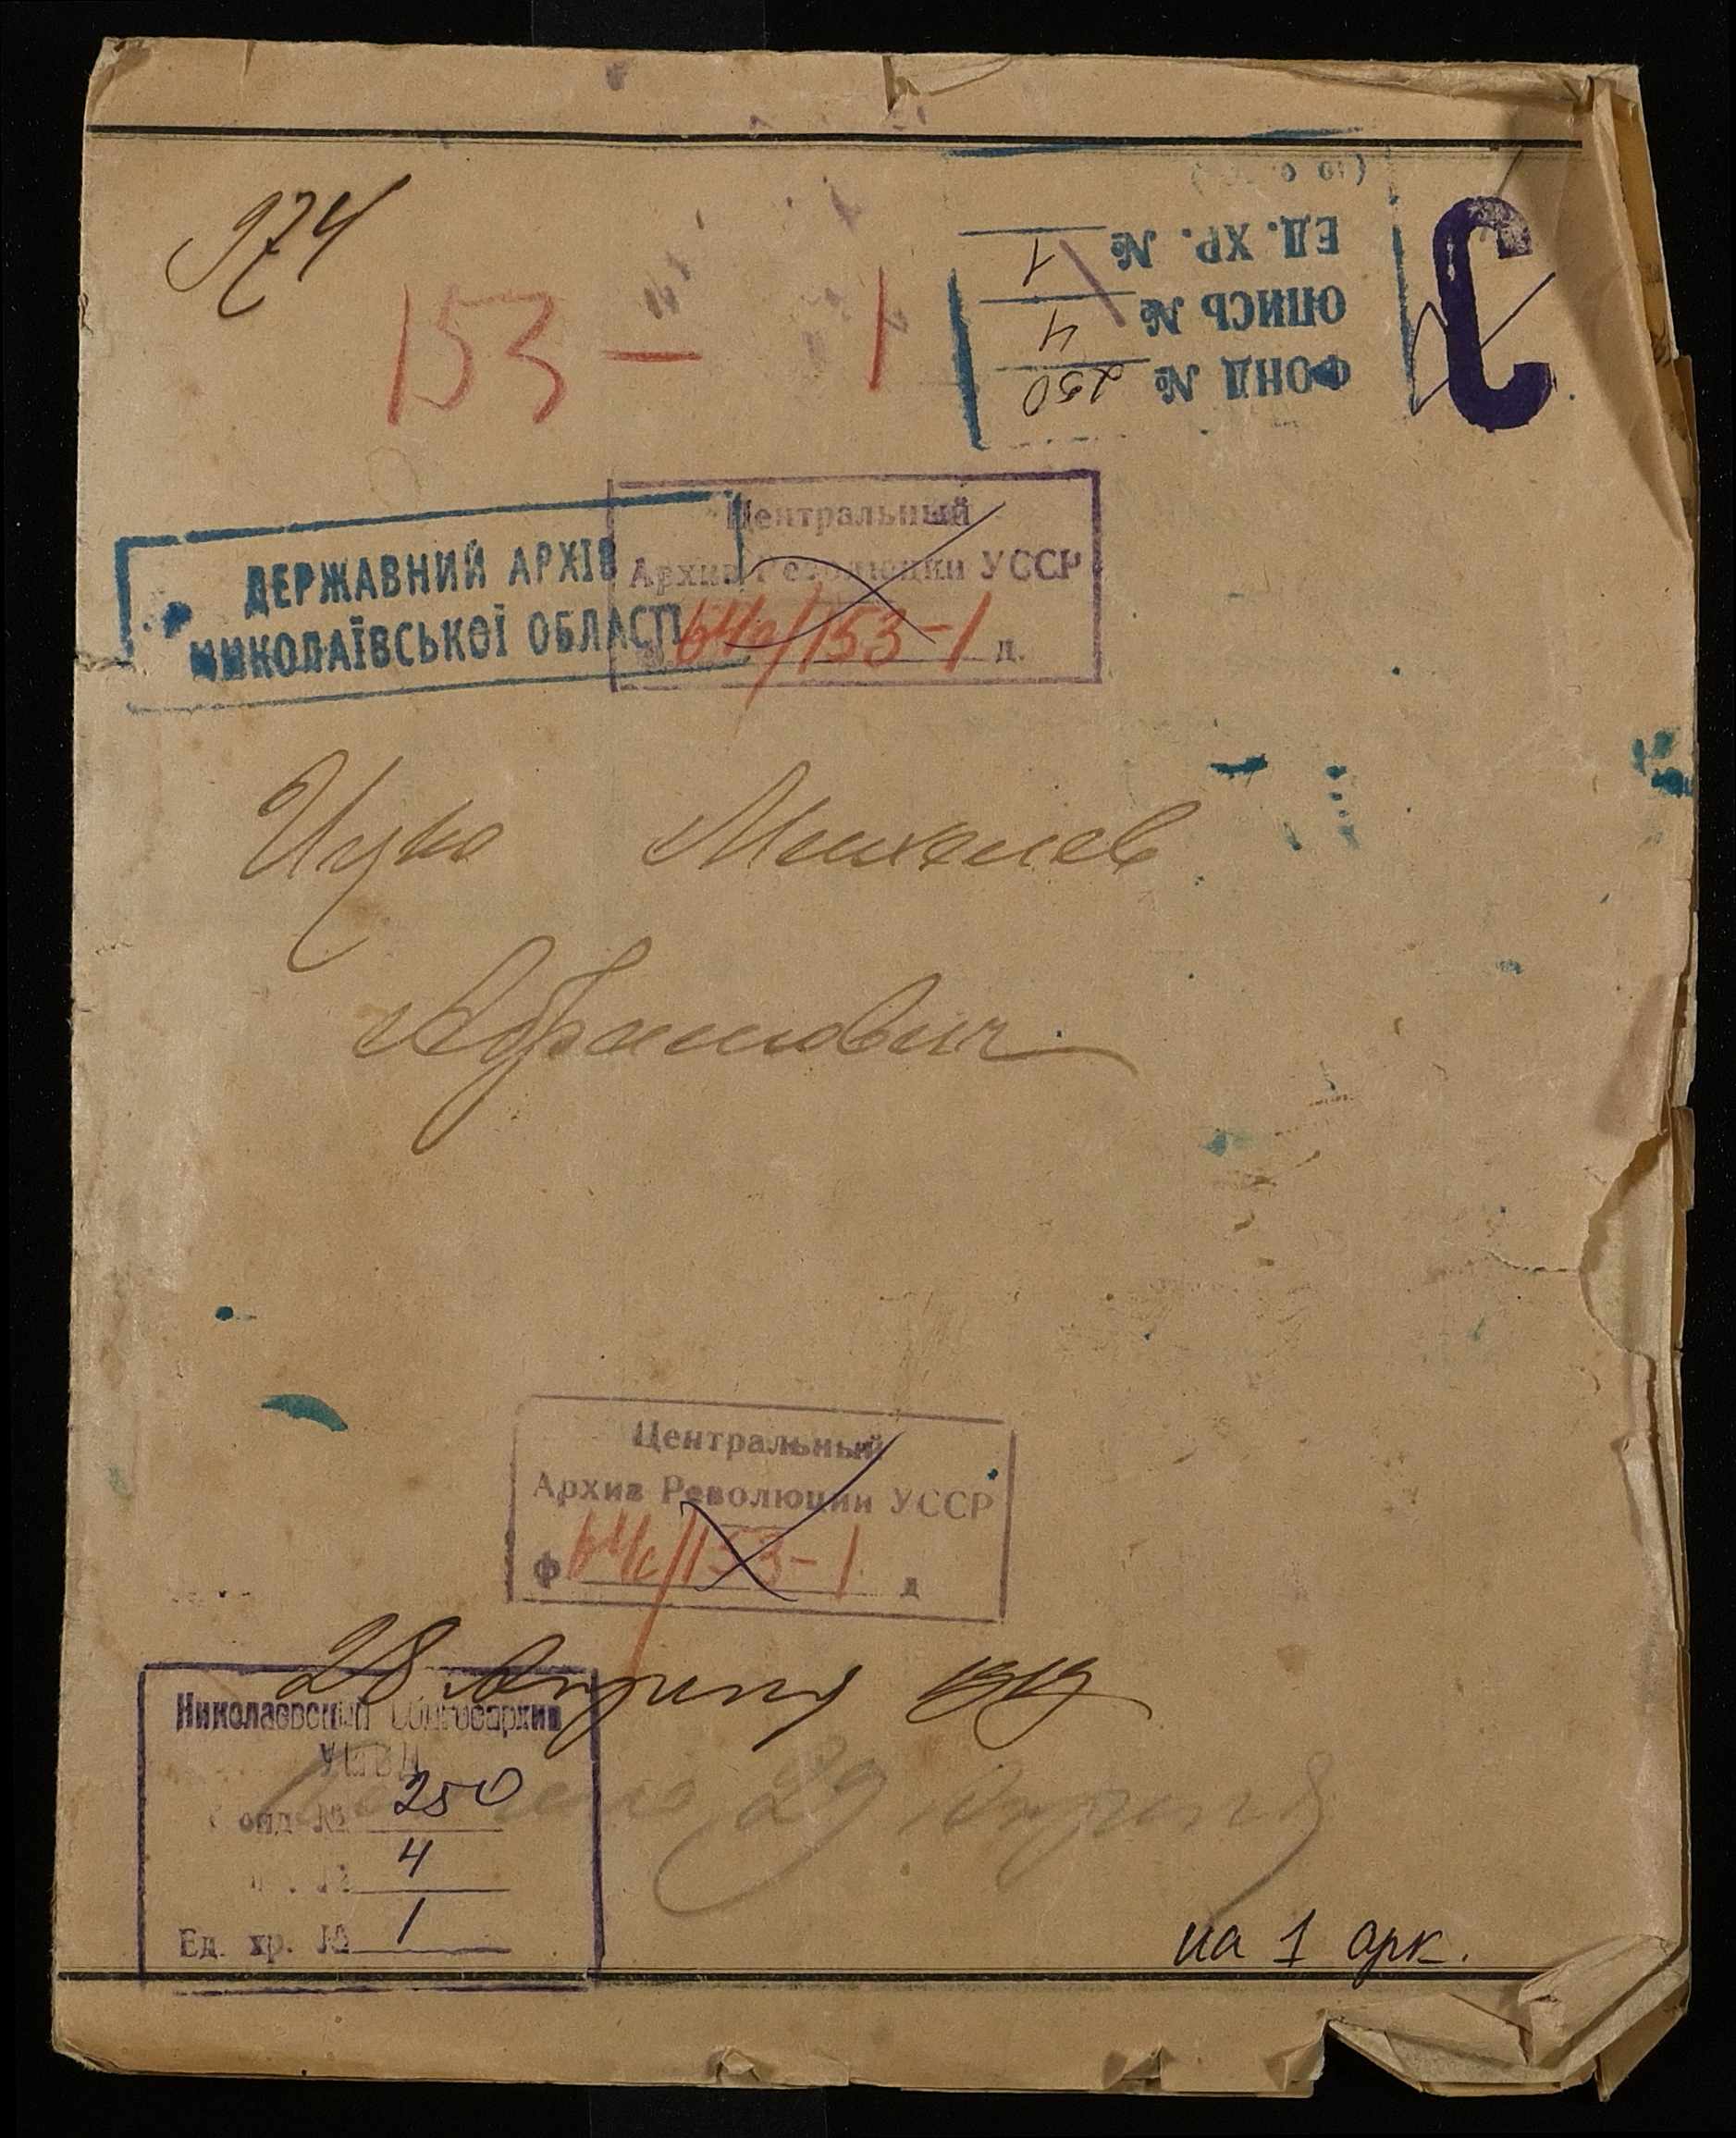 974
153 — 1
ФОНД № 250
ОПИСЬ № 4
ЕД. ХР. № 1
С
Центральный
Архив Революции УССР
64с/153-1 д.
ДЕРЖАВНИЙ АРХІВ
МИКОЛАЇВСЬКОЇ ОБЛАСТІ
Ицко Михелев
Абрамович
Центральный
Архив Революции УССР
ф 64с/153-1 д
28 Апреля 1919
29 Апреля
Николаевский Облгосархив
УМВД
Фонд № 250
4
Ед. хр. № 1
на 1 арк.